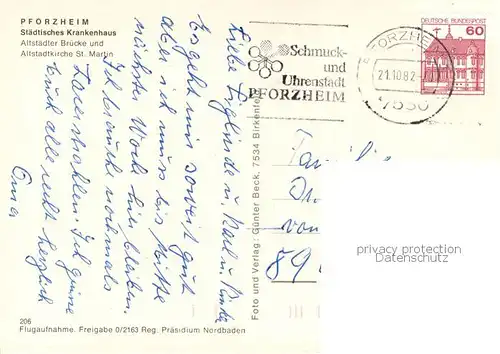 PFORZHEIM
Städtisches Krankenhaus
Altstädter Brücke und
Altstadtkirche St. Martin
Liebe Inglinde u. Karl u. Kinder
Es geht mir soweit gut
aber ich muss bis Mitte
nächster Woche hier bleiben.
Ich brauche nochmals
Laserstrahlen. Ich grüsse
Euch alle recht herzlich
Oma
206
Flugaufnahme. Freigabe 0/2163 Reg. Präsidium Nordbaden
Foto und Verlag: Günter Beck, 7534 Birkenfeld
Schmuck-
und
Uhrenstadt
PFORZHEIM
PFORZHEIM
21.10.82
7530
DEUTSCHE BUNDESPOST
60
Familie
von
89
privacy protection
Datenschutz